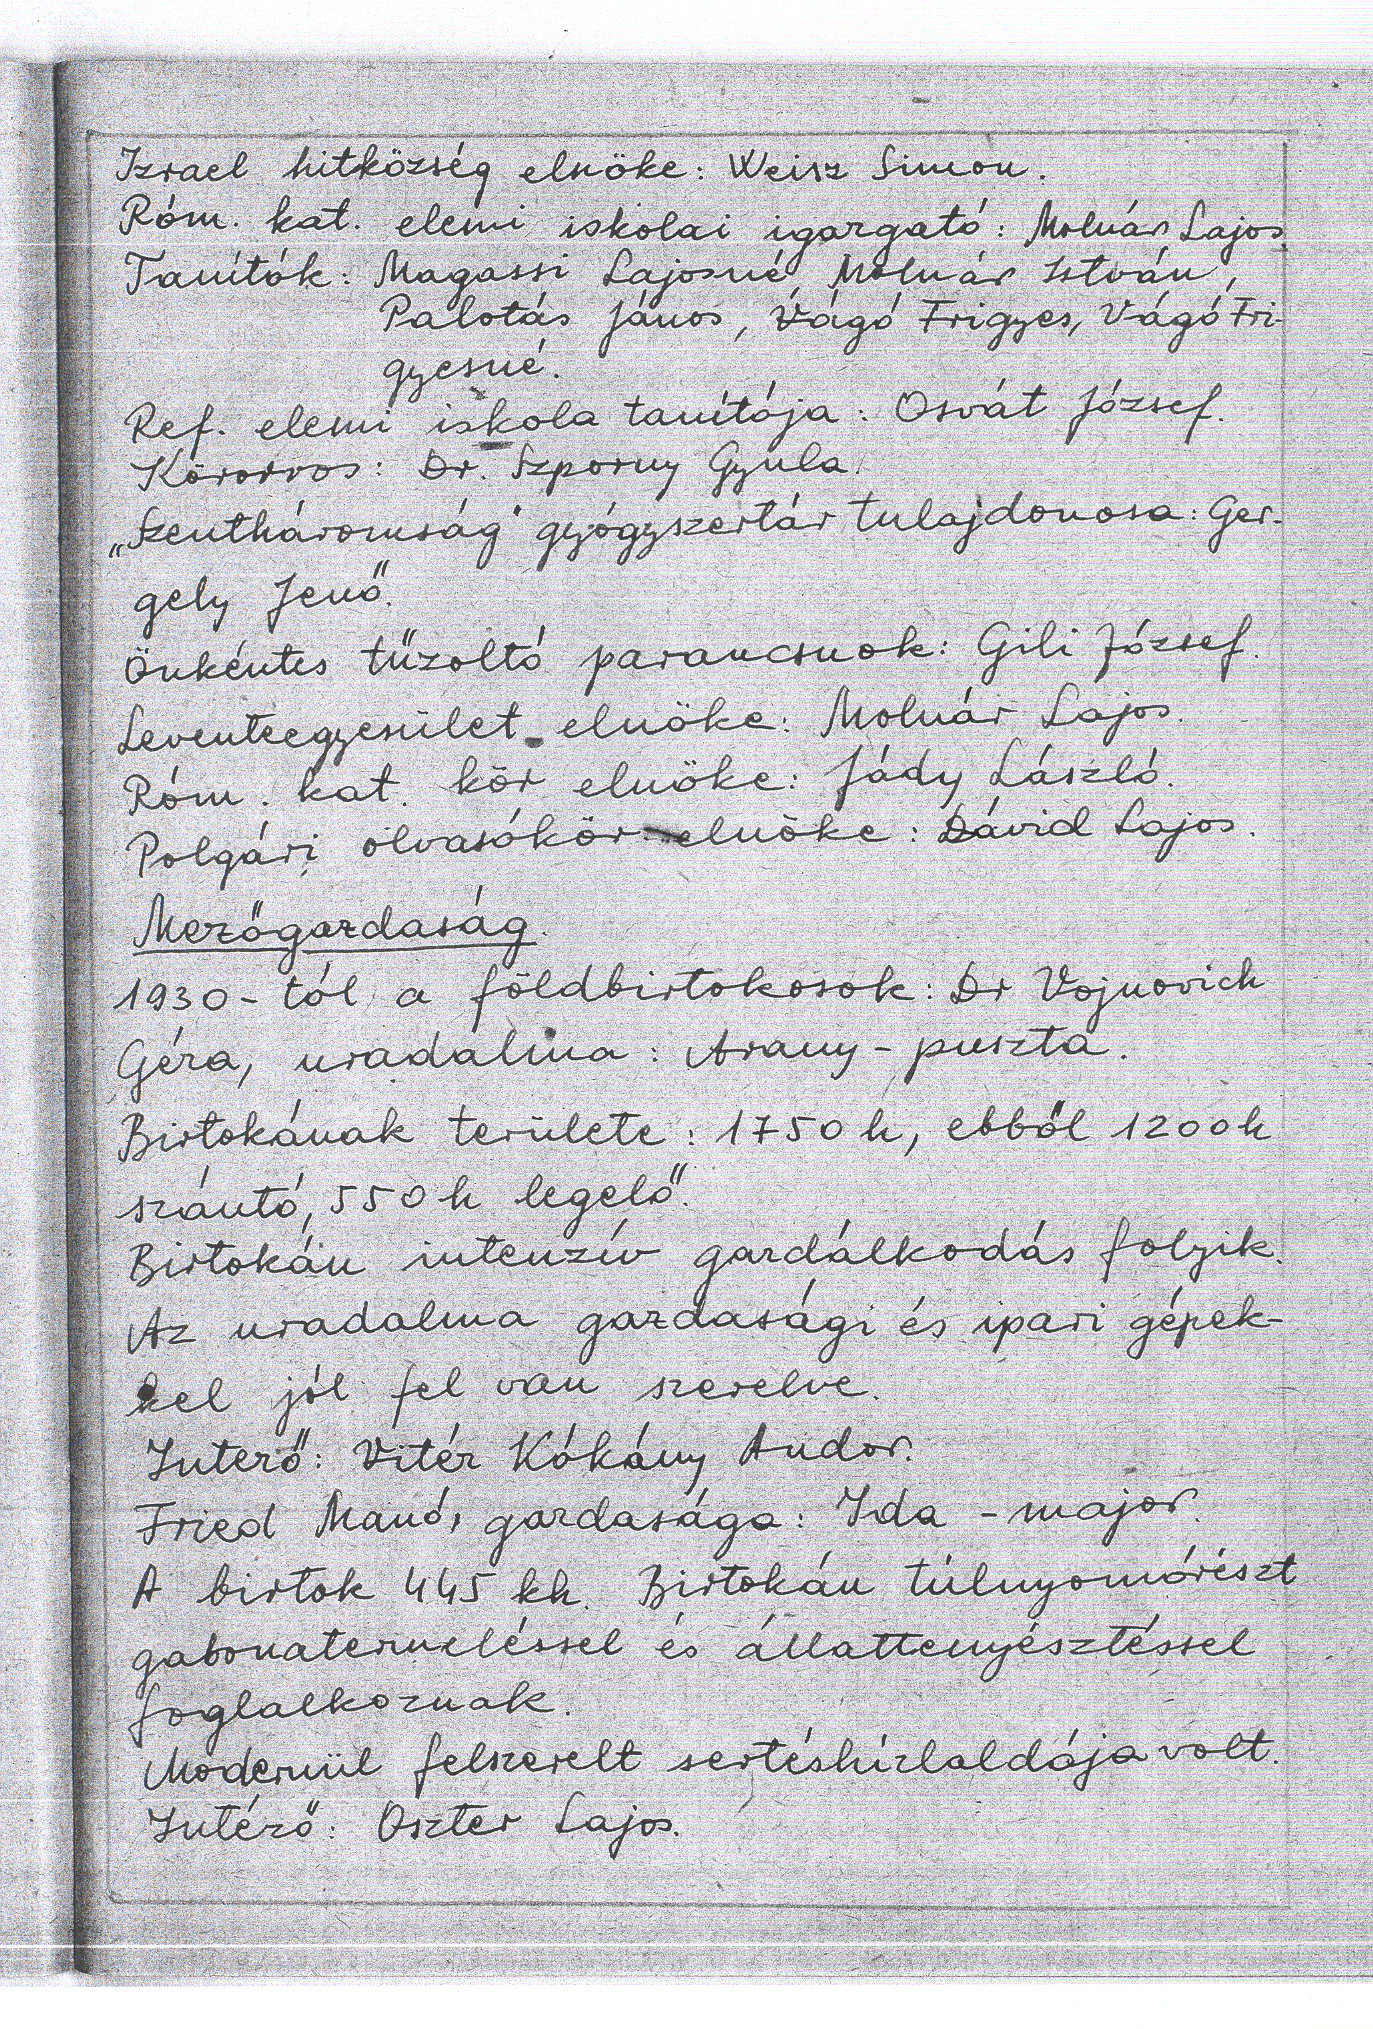 Izrael hitközség elnöke: Weisz Simon.
Róm. kat. elemi iskolai igazgató: Molnár Lajos
Tanítók: Magassi Lajosné, Molnár István,
Palotás János, Vágó Frigyes, Vágó Fri-
gyesné.
Ref. elemi iskola tanítója: Osvát József.
Körorvos: Dr. Szporny Gyula.
„Szentháromság" gyógyszertár tulajdonosa: Ger-
gely Jenő.
Önkéntes tűzoltó parancsnok: Gili József.
Leventeegyesület elnöke: Molnár Lajos.
Róm. kat. kör elnöke: Jády László.
Polgári olvasókör elnöke: Dávid Lajos.
Mezőgazdaság.
1930-tól a földbirtokosok: Dr Vojnovich
Géza, uradalma: Arany-puszta.
Birtokának területe: 1750 h, ebből 1200 h
szántó, 550 h legelő.
Birtokán intenzív gazdálkodás folyik.
Az uradalma gazdasági és ipari gépek-
kel jól fel van szerelve.
Intező: Vitéz Kókány Andor.
Fried Manó, gazdasága: Ida - major.
A birtok 445 kh. Birtokán túlnyomórészt
gabonatermeléssel és állattenyésztéssel
foglalkoznak.
Modernül felszerelt sertéshízlaldája volt.
Intéző: Oszter Lajos.